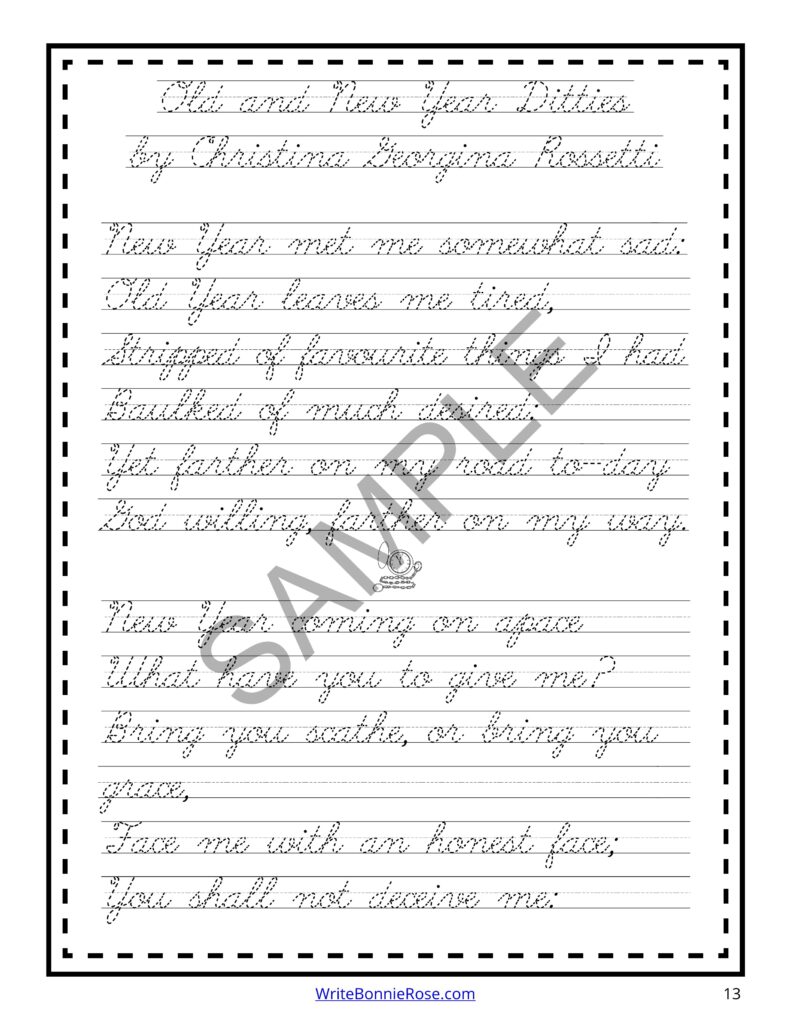 Old and New Year Ditties
by Christina Georgina Rossetti
New Year met me somewhat sad:
Old Year leaves me tired,
Stripped of favourite things I had
Baulked of much desired:
Yet farther on my road to-day
God willing, farther on my way.
New Year coming on apace
What have you to give me?
Bring you scathe, or bring you
grace,
Face me with an honest face;
You shall not deceive me:
SAMPLE
WriteBonnieRose.com
13